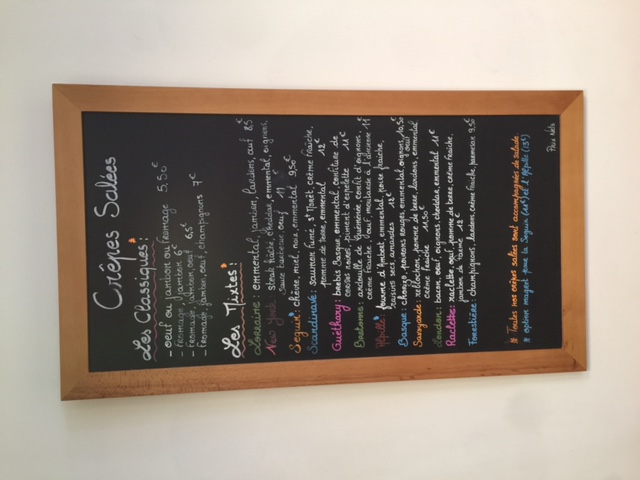 Crêpes Salées
Les Classiques :
- oeuf ou jambon ou fromage 5,50€
- fromage, jambon 6€
- fromage, jambon, oeuf 6,5€
- fromage, jambon, oeuf, champignons 7€
Les Mixtes :
Lorraine : emmental, jambon, lardons, oeuf 8,5€
New York : steak haché, cheddar, emmental, oignons,
oeuf 11€
Seguin : chèvre, miel, noix, emmental 9,50€
Scandinave : saumon fumé, St Moret, crème fraîche,
pomme de terre, emmental 12€
Guéthary : brebis Basque, emmental, confiture de
cerises noires, piment d'espelette 11€
Bretonne : andouille de Guémené, confit d'oignons,
crème fraîche, oeuf, moutarde à l'ancienne 11€
fourme d'Ambert, emmental, noix, fraîche,
raisins secs, amandes 12€
Basque : chorizo, poivrons rouges, emmental, oignons, 10,50€
oeuf
Savoyarde : reblochon, pomme de terre, lardons, emmental
crème fraîche 11,50€
London : bacon, oeuf, oignons, cheddar, emmental 11€
Raclette : raclette, oeuf, pomme de terre, crème fraîche,
jambon de 12€
Forestière : champignons, lardons, crème fraîche, parmesan 9,50€
* Toutes nos crêpes salées sont accompagnées de salade
* option magret pour la Seguin et l'
Prix Nets